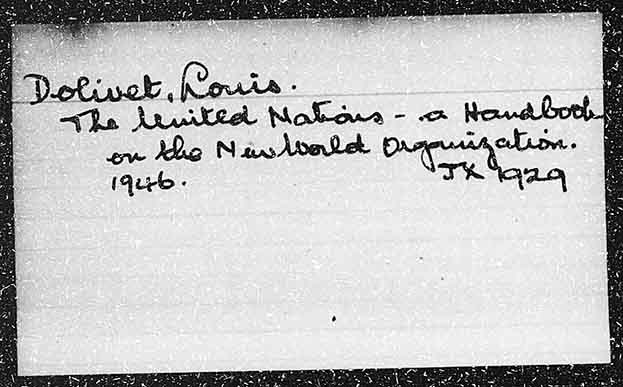 Dolivet, Louis.
The United Nations - a Handbook
on the New World Organization.
1946. JX 1929